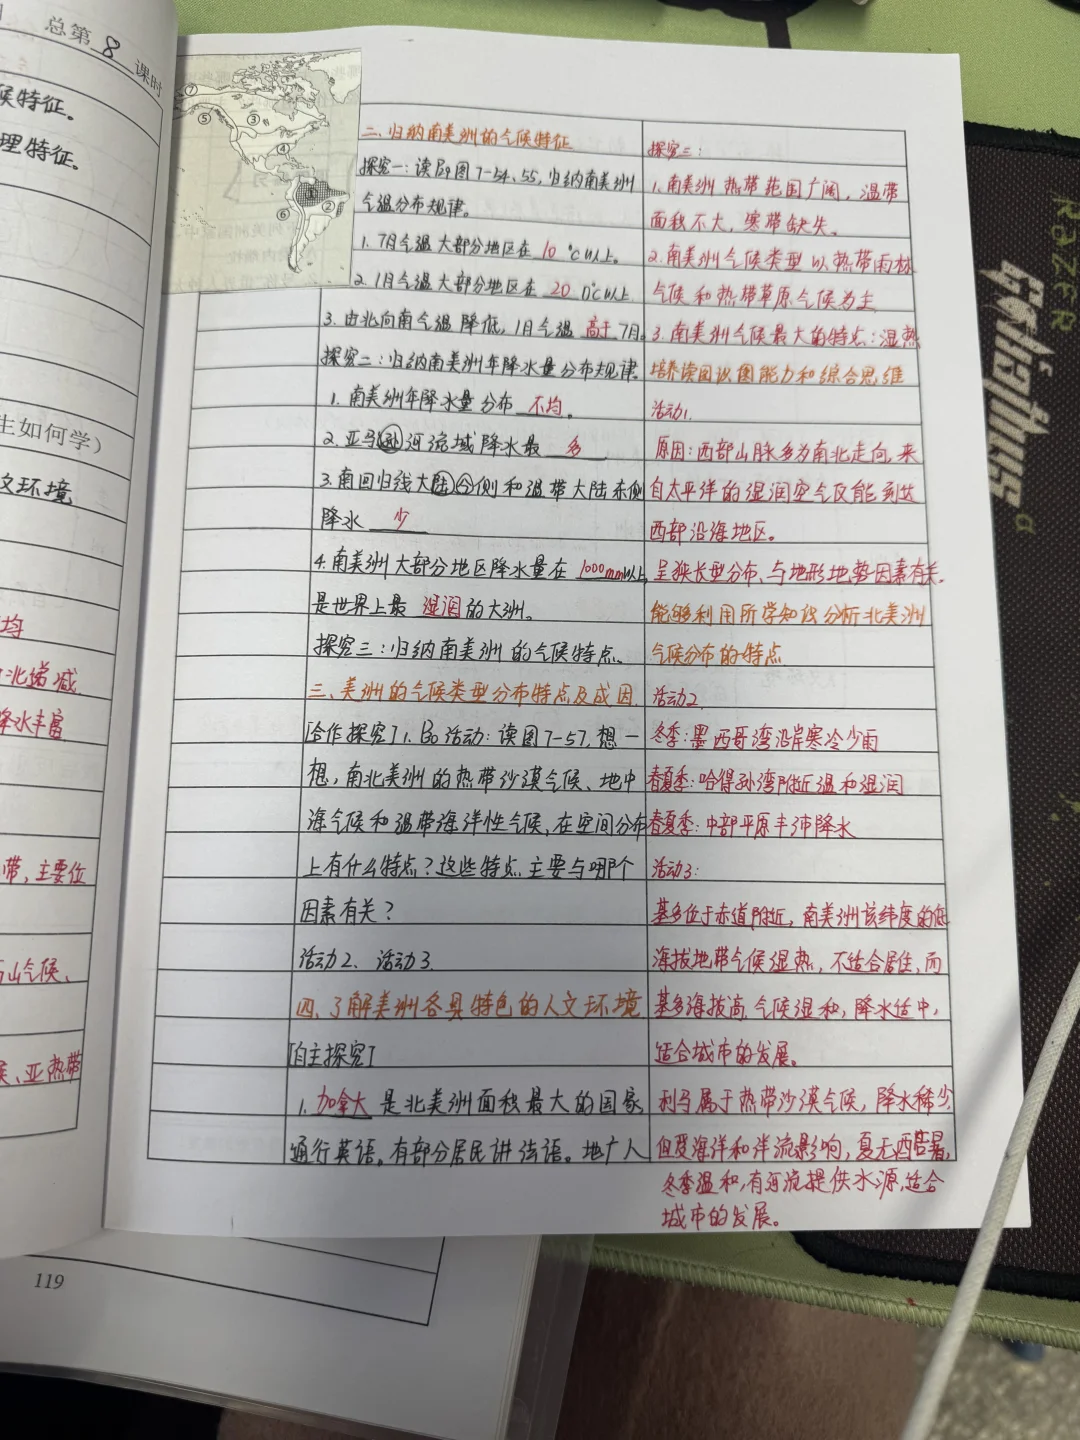 总第8课时
候特征。
理特征。
生如何学)
文环境
均
北递减
降水丰富
带,主要位
山气候、
候、亚热带
119
⑦
⑤
③
④
①
②
⑥
二、归纳南美洲的气候特征
探究一:读P89图7-54、55,归纳南美洲
气温分布规律。
1. 7月气温大部分地区在 10 ℃以上。
2. 1月气温大部分地区在 20 0℃以上
3. 由北向南气温降低,1月气温 高于 7月。
探究二:归纳南美洲年降水量分布规律。
1. 南美洲年降水量分布 不均。
2. 亚马孙河流域降水最 多
3. 南回归线大陆西侧和温带大陆东侧
降水 少
4. 南美洲大部分地区降水量在 1000mm以上,
是世界上最 湿润 的大洲。
探究三:归纳南美洲的气候特点。
三、美洲的气候类型分布特点及成因.
[合作探究]1. P90活动:读图7-57,想一
想,南北美洲的热带沙漠气候、地中
海气候和温带海洋性气候,在空间分布
上有什么特点?这些特点主要与哪个
因素有关?
活动2、活动3.
四、了解美洲各具特色的人文环境
[自主探究]
1. 加拿大 是北美洲面积最大的国家
通行英语。有部分居民讲法语。地广人
探究三:
1. 南美洲热带范围广阔,温带
面积不大,寒带缺失。
2. 南美洲气候类型以热带雨林
气候和热带草原气候为主
3. 南美洲气候最大的特点:湿热
培养读图识图能力和综合思维
活动1.
原因:西部山脉多为南北走向,来
自太平洋的湿润空气仅能到达
西部沿海地区。
呈狭长型分布、与地形地势因素有关.
能够利用所学知识分析北美洲
气候分布的特点
活动2.
冬季:墨西哥湾沿岸寒冷少雨
春夏季:哈得孙湾附近温和湿润
春夏季:中部平原丰沛降水
活动3:
基多位于赤道附近,南美洲该纬度的低
海拔地带气候湿热,不适合居住,而
基多海拔高,气候温和,降水适中,
适合城市的发展。
利马属于热带沙漠气候,降水稀少
但受海洋和洋流影响,夏无酷暑,
冬季温和,有河流提供水源,适合
城市的发展。
RaZER